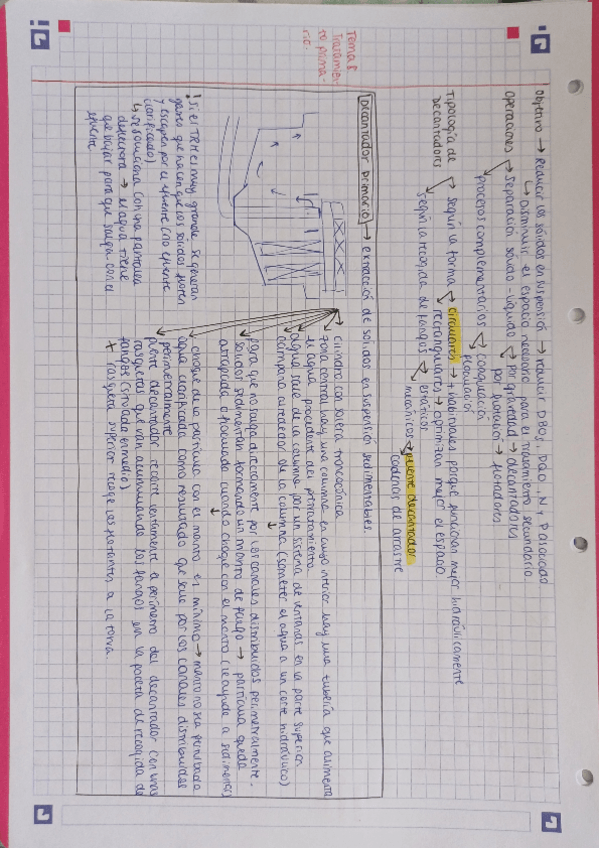 Tema 8
Tratamien-
to prima-
rio:
Objetivo → Reducir los sólidos en suspensión → reducir DBO5, DQO, N y P asociado
↳ Disminuir el espacio necesario para el tratamiento secundario
Operaciones → Separación sólido-líquido → por gravedad → decantadores
por flotación → flotadores
Procesos complementarios → coagulación
floculación
Tipología de → según la forma → circulares → + habituales porque funcionan mejor hidráulicamente
decantadores
rectangulares → optimizan mejor el espacio
según la recogida de fangos → estáticos
mecánicos → puente decantador
cadenas de arrastre
Decantador primario → extracción de sólidos en suspensión sedimentables.
cilindro con solera troncocónica
zona central hay una columna en cuyo interior hay una tubería que alimenta
el agua procedente del pretratamiento.
agua sale de la columna por un sistema de ventanas en la parte superior
campana alrededor de la columna (someter el agua a un corte hidráulico)
para que no salga directamente por los canales distribuidos perimetralmente.
sólidos sedimentan formando un manto de fuego → partícula queda
atrapada o floculada cuando choque con el manto (le ayude a sedimentar)
choque de la partícula con el manto es mínimo → manto no sea perturbado
agua clarificada como resultado que sale por los canales distribuidos
perimetralmente
puente decantador recorre lentamente el perímetro del decantador con unas
rasquetas que van acumulando los fangos en la poceta de recogida de
fangos (situada en medio)
+ rasqueta superior recoge los flotantes a la tolva.
! Si el TRH es muy grande se generan
gases que hacen que los sólidos floten
y escapen por el efluente (no efluente
clarificado)
↳ se soluciona con una pantalla
deflectora → el agua tiene
que bajar para que salga con el
efluente